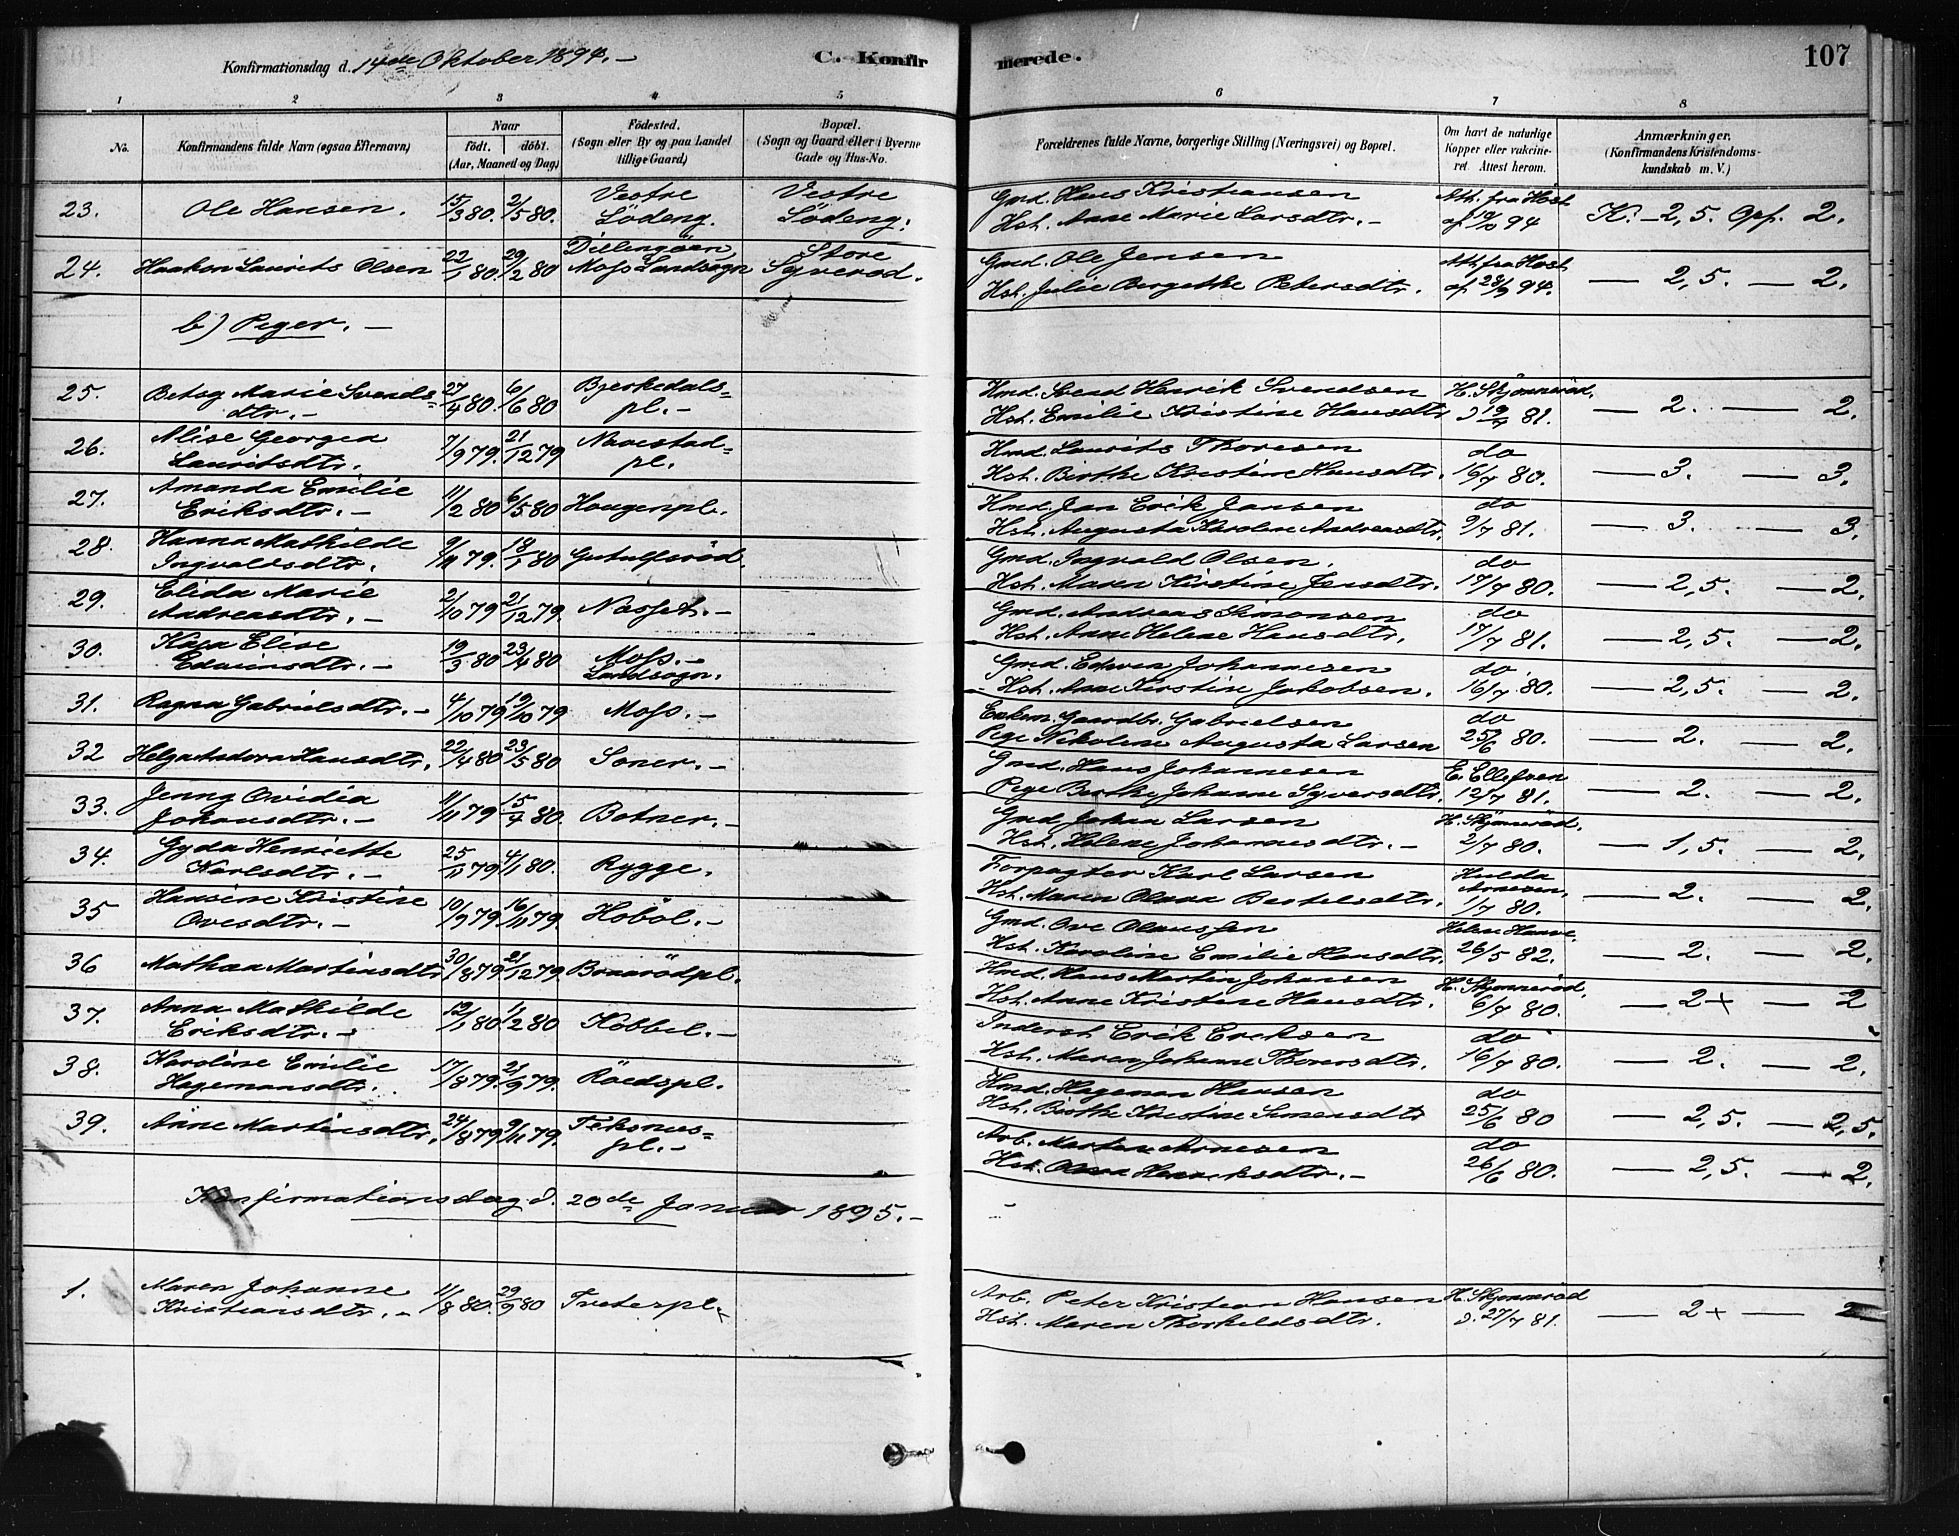 Konfirmationsdag d. 14de Oktober 1894. –
C. Konfirmerede.
107
1 2 3 4 5 6 7 8
No.
Konfirmandens fulde Navn (ogsaa Efternavn)
Naar
født. døbt.
(Aar, Maaned og Dag)
Fødested.
(Sogn eller By og paa Landet
tillige Gaard)
Bopæl.
(Sogn og Gaard eller i Byerne
Gade og Hus-No.
Forældrenes fulde Navne, borgerlige Stilling (Næringsvei) og Bopæl.
Om havt de naturlige
Kopper eller vakcine-
ret. Attest herom.
Anmærkninger.
(Konfirmandens Kristendoms-
kundskab m. V.)
23. Ole Hansen. 15/3 80. 2/5 80. Vestre Södeng. Vestre Södeng. Gmd. Hans Kristiansen
Hst. Anne Marie Larsdtr. – Att. fra Höst af 94 K. – 2,5. Opf. 2.
24. Haakon Laurits Olsen 22/1 80. 29/2 80 Dillingöen Moss Landsogn Store Syverød. Gmd. Ole Jensen
Hst. Julie Bergethe Petersdtr. Att. fra Höst af 28/9 94. — 2,5. — 2.
b) Piger. –
25. Betsy Marie Svends=
dtr. – 27/4 80. 6/6 80 Bjerkedals=
pl. – Hmd. Svend Henrik Svendsen
Hst. Emilie Kristine Hansdtr. H. Skjönneröd. 81. — 2. — 2.
26. Alise Georgea
Lauritsdtr. 7/9 79. 21/12 79 Navestad=
pl. Hmd. Laurits Thoresen
Hst. Berthe Kristine Hansdtr. do 16/7 80. — 3. — 3.
27. Amanda Emilie
Eriksdtr. – 11/2 80 6/5 80 Haugenpl. Hmd. Jan Erik Jansen
Hst. Augusta Karoline Andreasdtr. do 9/7 81. — 3. — 3.
28. Hanna Mathilde
Ingvaldsdtr. 9/11 79. 18/1 80 Gutulfsröd. Gmd. Ingvald Olsen.
Hst. Maren Kirstine Jensdtr. do 17/7 80. — 2,5. — 2.
29. Elida Marie
Andreasdtr. – 2/10 79 21/12 79. Næsset. – Gmd. Andreas Simonsen
Hst. Anne Helene Hansdtr. do 17/7 81. — 2,5. — 2.
30. Kaja Elise
Edwinsdtr. – 19/3 80 23/4 80 Moss. –
Landsogn. Gmd. Edwin Johannesen
Hst. Ane Kirstine Jakobsen. do. 16/7 80. — 2,5. — 2.
31. Ragna Gabrielsdtr. – 4/10 79 19/10 79 Moss. – Enkem. Gaardbr. Gabrielsen
Pige Nikoline Augusta Larsen do 25/6 80. — 2. — 2.
32 Helga Hansdtr. 22/4 80 23/5 80 Soner. – Gmd. Hans Johannesen
Pige Berthe Johanne Syversdtr. E. Ellefsen 12/7 81. — 2. — 2.
33. Jenny Ovidia
Johansdtr. – 11/11 79 15/4 80. Botner. – Gmd Johan Larsen
Hst. Helene Johannesdtr. – H. Skjönneröd. 2/7 80. — 1,5. — 2.
34. Gyda Henriette
Karlsdtr. – 25/11 79 4/1 80. Rygge. Forpagter Karl Larsen
Hst. Maren Olava Bertelsdtr. Hulda Arnesen. 1/7 80. — 2. — 2.
35 Hansine Kristine
Ovesdtr. – 10/9 79 16/11 79. Hobøl. – Gmd. Ove Olaussen
Hst. Karoline Emilie Hansdtr. 26/5 82. — 2. — 2
36 Mathea Martinsdtr 30/8 79 21/12 79 Brarödpl. Hmd. Hans Martin Johansen
Hst. Anne Kristine Hansdtr. H. Skjönneröd. 6/7 80. — 2+ — 2
37. Anna Mathilde
Eriksdtr. – 12/1 80 1/2 80 Kobbel. – Inderst Erik Eriksen
Hst. Maren Johanne do 16/7 80. — 2. — 2.
38. Karoline Emilie
Hagemansdtr. 17/8 79. 21/9 79. Röedspl. Hmd. Hageman Hansen
Hst. Berthe Kristine Simensdtr do 25/6 80 — 2,5. — 2,5.
39. Anne Martinsdtr. 24/8 79 9/11 79. Teksnes=
pl. – Arb. Martin Arnesen
Hst. Olava Henriksdtr. – do 26/6 80. — 2,5. — 2.
Konfirmationsdag d. 20de Januar 1895. –
1. Maren Johanne
Kristiansdtr. – 11/8 80. 29/9 80 Tveterpl. Arb. Peter Kristian Hansen
Hst. Maren Thorkildsdtr. H. Skjönneröd d. 27/7 81. — 2+ — 2